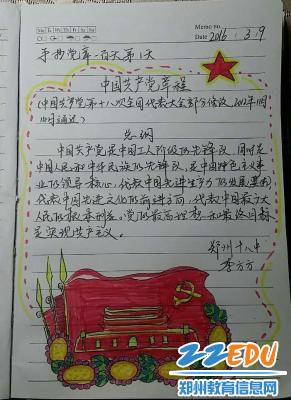 Memo no.
Date 2016 . 3 . 19
手抄党章一百天第1天
中国共产党章程
(中国共产党第十八次全国代表大会部分修改,2012年11月
14日通过)
总纲
中国共产党是中国工人阶级的先锋队,同时是
中国人民和中华民族的先锋队,是中国特色社会主义事
业的领导核心,代表中国先进生产力的发展要求,
代表中国先进文化的前进方向,代表中国最广大
人民的根本利益。党的最高理想和最终目标
是实现共产主义。
郑州十八中
李方方
22EDU
郑州教育信息网